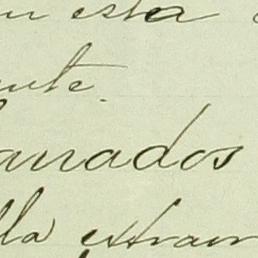 en esta
ente.
anados
lla extran